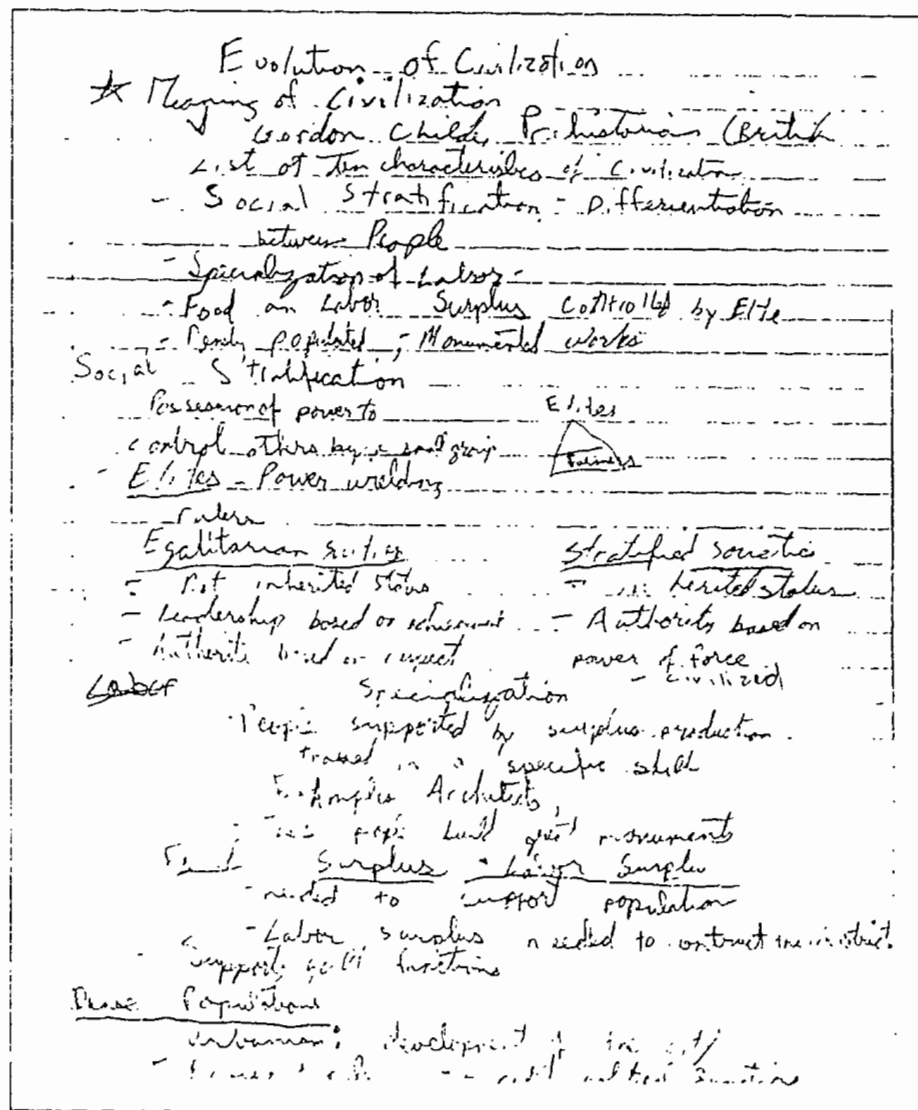 Evolution of Civilization
★ Meaning of Civilization
Gordon Childe, Prehistorian (British
List of Ten characteristics of Civilization
- Social Stratification - Differentiation
between People
- Specialization of Labor -
- Food an Labor Surplus controlled by Elite
- populated, - Monumental works
Social Stratification
Possession of power to
Elites
control others by a small group
Farmers
- Elites - Power wielding
rulers
Egalitarian societies
Stratified societies
- Not inherited status
- inherited status
- Leadership based on achievement
- Authority based on
- Authority based on respect
power of force
- civilized
Labor Specialization
- People supported by surplus production
trained in a specific skill
Examples Architects,
- people build great monuments
Food Surplus - Labor Surplus
- needed to support population
- Labor surplus needed to
- support functions
Dense Populations
development of the city